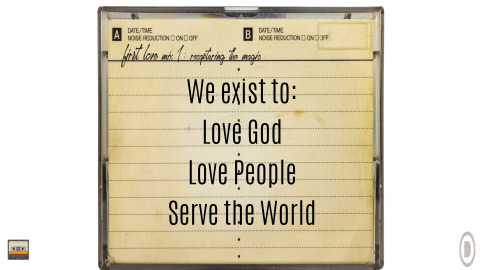 A DATE/TIME
NOISE REDUCTION ☐ ON ☐ OFF
B DATE/TIME
NOISE REDUCTION ☐ ON ☐ OFF
first love mix 1: recapturing the magic
We exist to:
Love God
Love People
Serve the World